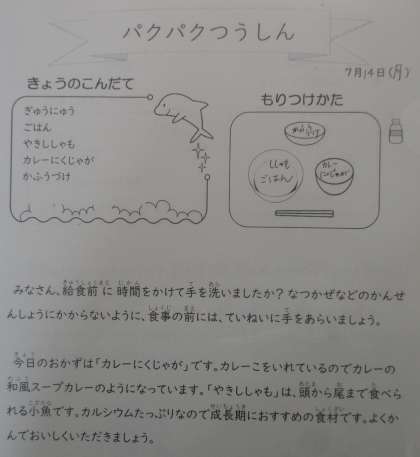 パクパクつうしん
7月14日(月)
きょうのこんだて
ぎゅうにゅう
ごはん
やきししゃも
カレーにくじゃが
かふうづけ
もりつけかた
かふうづけ
ししゃも
ごはん
カレー
にくじゃが
みなさん、給食前に時間をかけて手を洗いましたか?なつかぜなどのかんせ
んしょうにかからないように、食事の前には、ていねいに手をあらいましょう。
今日のおかずは「カレーにくじゃが」です。カレーこをいれているのでカレーの
和風スープカレーのようになっています。「やきししゃも」は、頭から尾まで食べら
れる小魚です。カルシウムたっぷりなので成長期におすすめの食材です。よくか
んでおいしくいただきましょう。